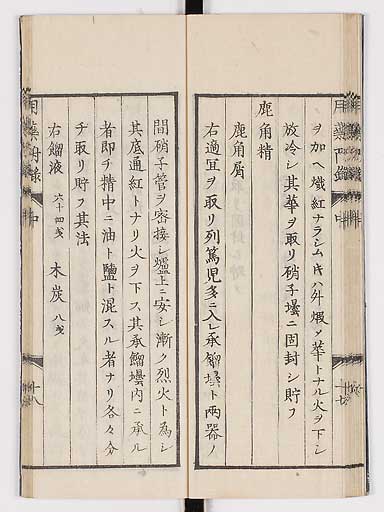 ヲ加ヘ熾紅ナラシム
華トナル火ヲ下シ
放冷シ其華ヲ取リ硝子壜ニ固封シ貯フ
鹿角精
鹿角屑
右適宜ヲ取リ列篤児多ニ入レ承餾壜ト両器ノ
間硝子管ヲ密接シ爐上ニ安シ漸ク烈火ト為シ
其底通紅トナリ火ヲ下ス其承餾壜内ニ承ル
者即チ精中ニ油ト鹽ト混スル者ナリ各々分
チ取リ貯フ其法
右餾液 六十四戔 木炭 八戔
十七
中
十八